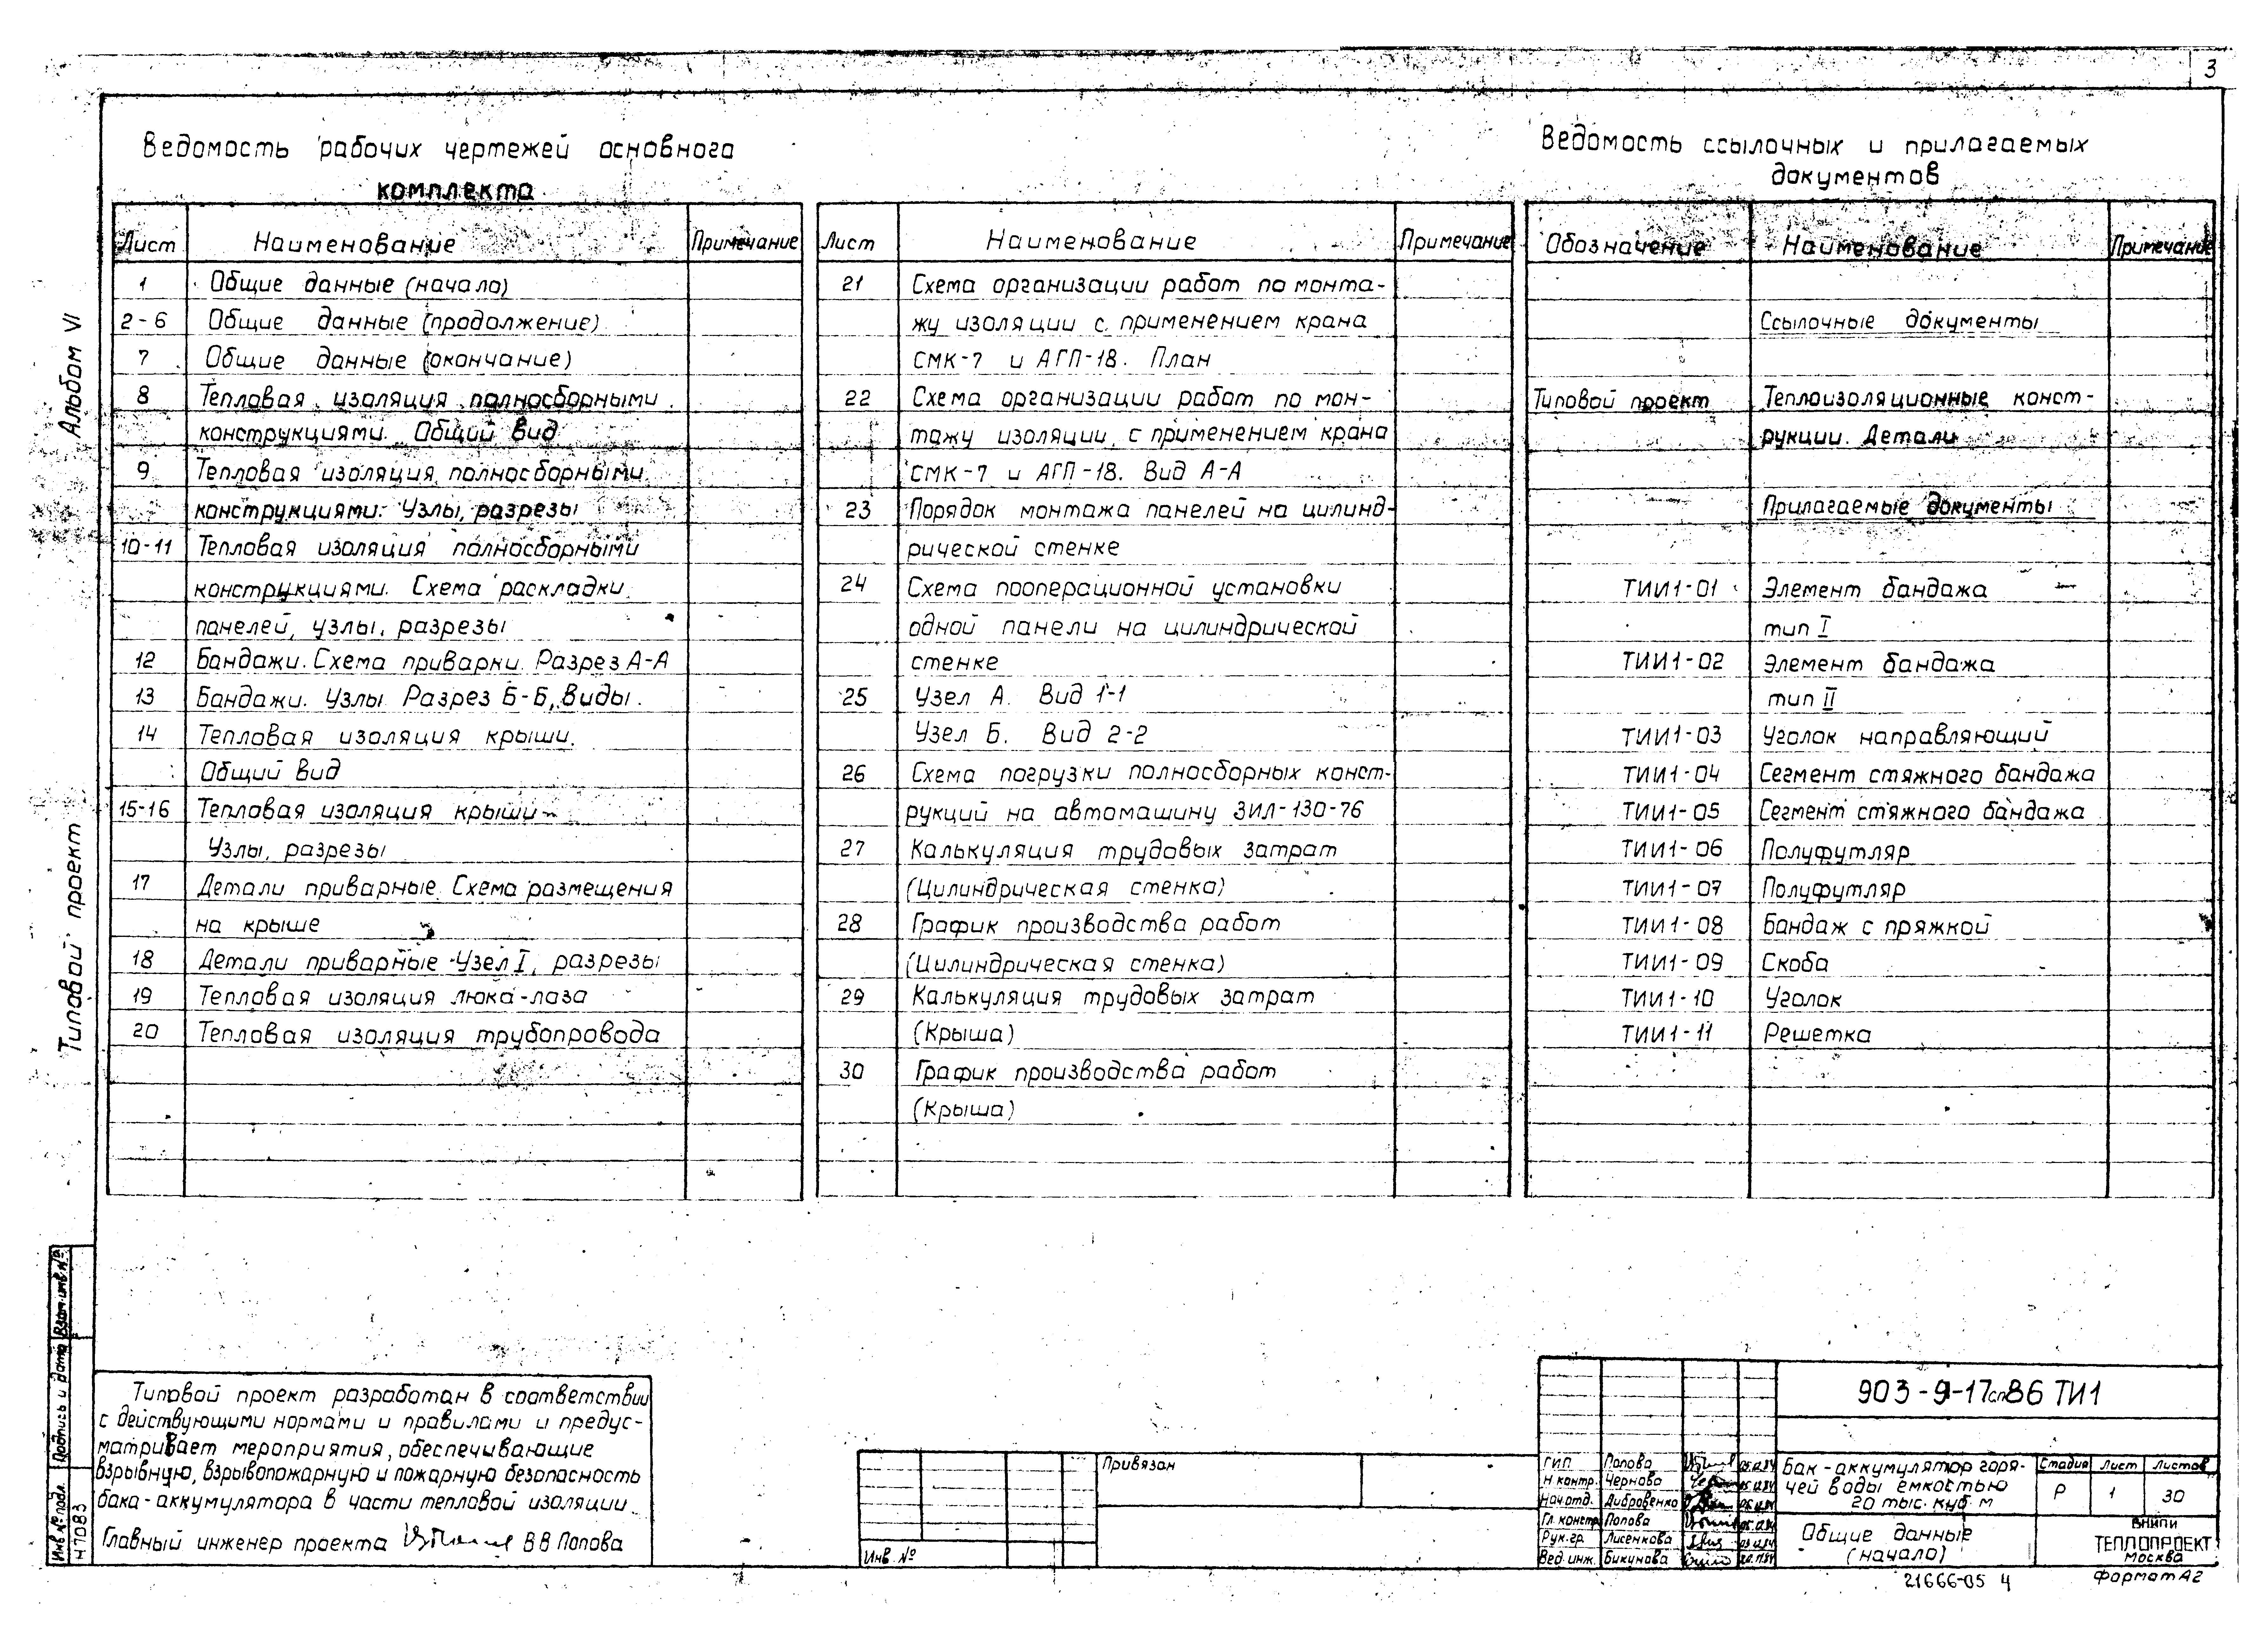 3
Ведомость рабочих чертежей основного
комплекта
Лист Наименование Примечание
1 Общие данные (начало)
2-6 Общие данные (продолжение)
7 Общие данные (окончание)
8 Тепловая изоляция полносборными
конструкциями. Общий вид
9 Тепловая изоляция полносборными
конструкциями. Узлы, разрезы
10-11 Тепловая изоляция полносборными
конструкциями. Схема раскладки
панелей, узлы, разрезы
12 Бандажи. Схема приварки. Разрез А-А
13 Бандажи. Узлы. Разрез Б-Б, виды.
14 Тепловая изоляция крыши.
Общий вид
15-16 Тепловая изоляция крыши-
Узлы, разрезы
17 Детали приварные. Схема размещения
на крыше
18 Детали приварные. Узел I, разрезы
19 Тепловая изоляция люка-лаза
20 Тепловая изоляция трубопровода
Лист Наименование Примечание
21 Схема организации работ по монта-
жу изоляции с применением крана
СМК-7 и АГП-18. План
22 Схема организации работ по мон-
тажу изоляции с применением крана
СМК-7 и АГП-18. Вид А-А
23 Порядок монтажа панелей на цилинд-
рической стенке
24 Схема пооперационной установки
одной панели на цилиндрической
стенке
25 Узел А. Вид 1-1
Узел Б. Вид 2-2
26 Схема погрузки полносборных конст-
рукций на автомашину ЗИЛ-130-76
27 Калькуляция трудовых затрат
(Цилиндрическая стенка)
28 График производства работ
(Цилиндрическая стенка)
29 Калькуляция трудовых затрат
(Крыша)
30 График производства работ
(Крыша)
Ведомость ссылочных и прилагаемых
документов
Обозначение Наименование Примечание
Ссылочные документы
Типовой проект Теплоизоляционные конст-
рукции. Детали
Прилагаемые документы
ТИИ1-01 Элемент бандажа
тип I
ТИИ1-02 Элемент бандажа
тип II
ТИИ1-03 Уголок направляющий
ТИИ1-04 Сегмент стяжного бандажа
ТИИ1-05 Сегмент стяжного бандажа
ТИИ1-06 Полуфутляр
ТИИ1-07 Полуфутляр
ТИИ1-08 Бандаж с пряжкой
ТИИ1-09 Скоба
ТИИ1-10 Уголок
ТИИ1-11 Решетка
Типовой проект Альбом VI
Инв. № подл. Подпись и дата Взам. инв. №
Н7083
Типовой проект разработан в соответствии
с действующими нормами и правилами и предус-
матривает мероприятия, обеспечивающие
взрывную, взрывопожарную и пожарную безопасность
бака-аккумулятора в части тепловой изоляции.
Главный инженер проекта В В Попова
Привязан
Инв. №
903-9-17сп86 ТИ1
ГИП Попова
Н контр. Чернова
Нач.отд. Дибровенко
Гл. констр. Попова
Рук. гр. Лисенкова
Вед. инж. Бикунова
Бак-аккумулятор горя-
чей воды емкостью
20 тыс. куб. м
Стадия Лист Листов
Р 1 30
Общие данные
(начало)
ВНИПИ
ТЕПЛОПРОЕКТ
Москва
21666-05 4
Формат А2